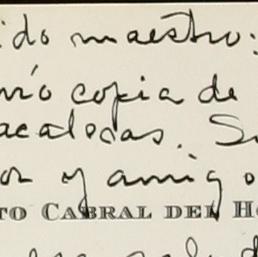 ido maestro:
vío copia de
acalocas. S
or y amigo
TO CABRAL DEL H